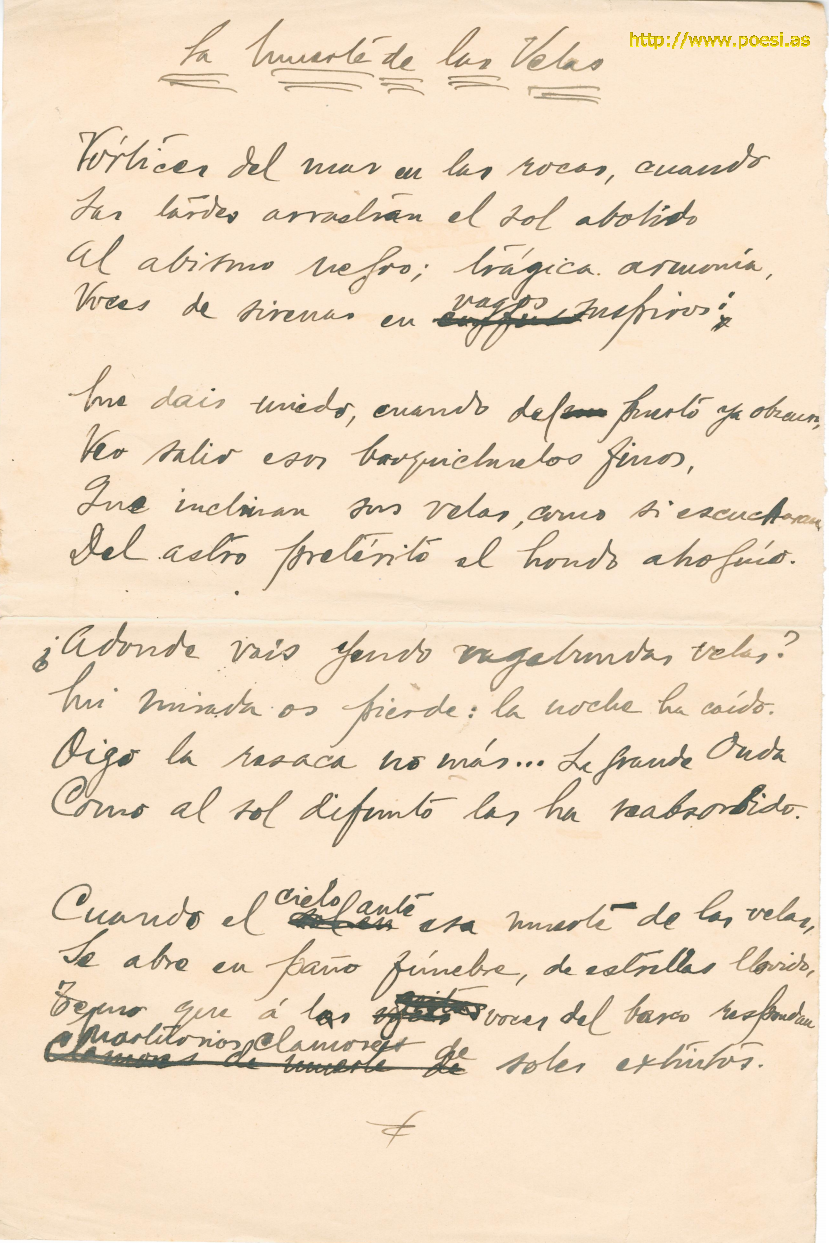 http://www.poesi.as
La Muerte de las Velas
Vórtices del mar en las rocas, cuando
Las tardes arrastran el sol abolido
Al abismo negro; trágica armonía,
Voces de sirenas en vagos suspiros:
Me dais miedo, cuando del puerto ya obscuro,
Veo salir esos barquichuelos finos,
Que inclinan sus velas, como si escucharan
Del astro pretérito el hondo ahoguío.
¿Adonde vais yendo vagabundas velas?
Mi mirada os pierde: la noche ha caído.
Oigo la resaca no más... La grande Onda
Como al sol difunto las ha reabsorbido.
Cuando el cielo ante esa muerte de las velas,
Se abre en paño fúnebre, de estrellas llovido,
Temo que á las voces del barco respondan
Mortitorios clamores de soles extintos.